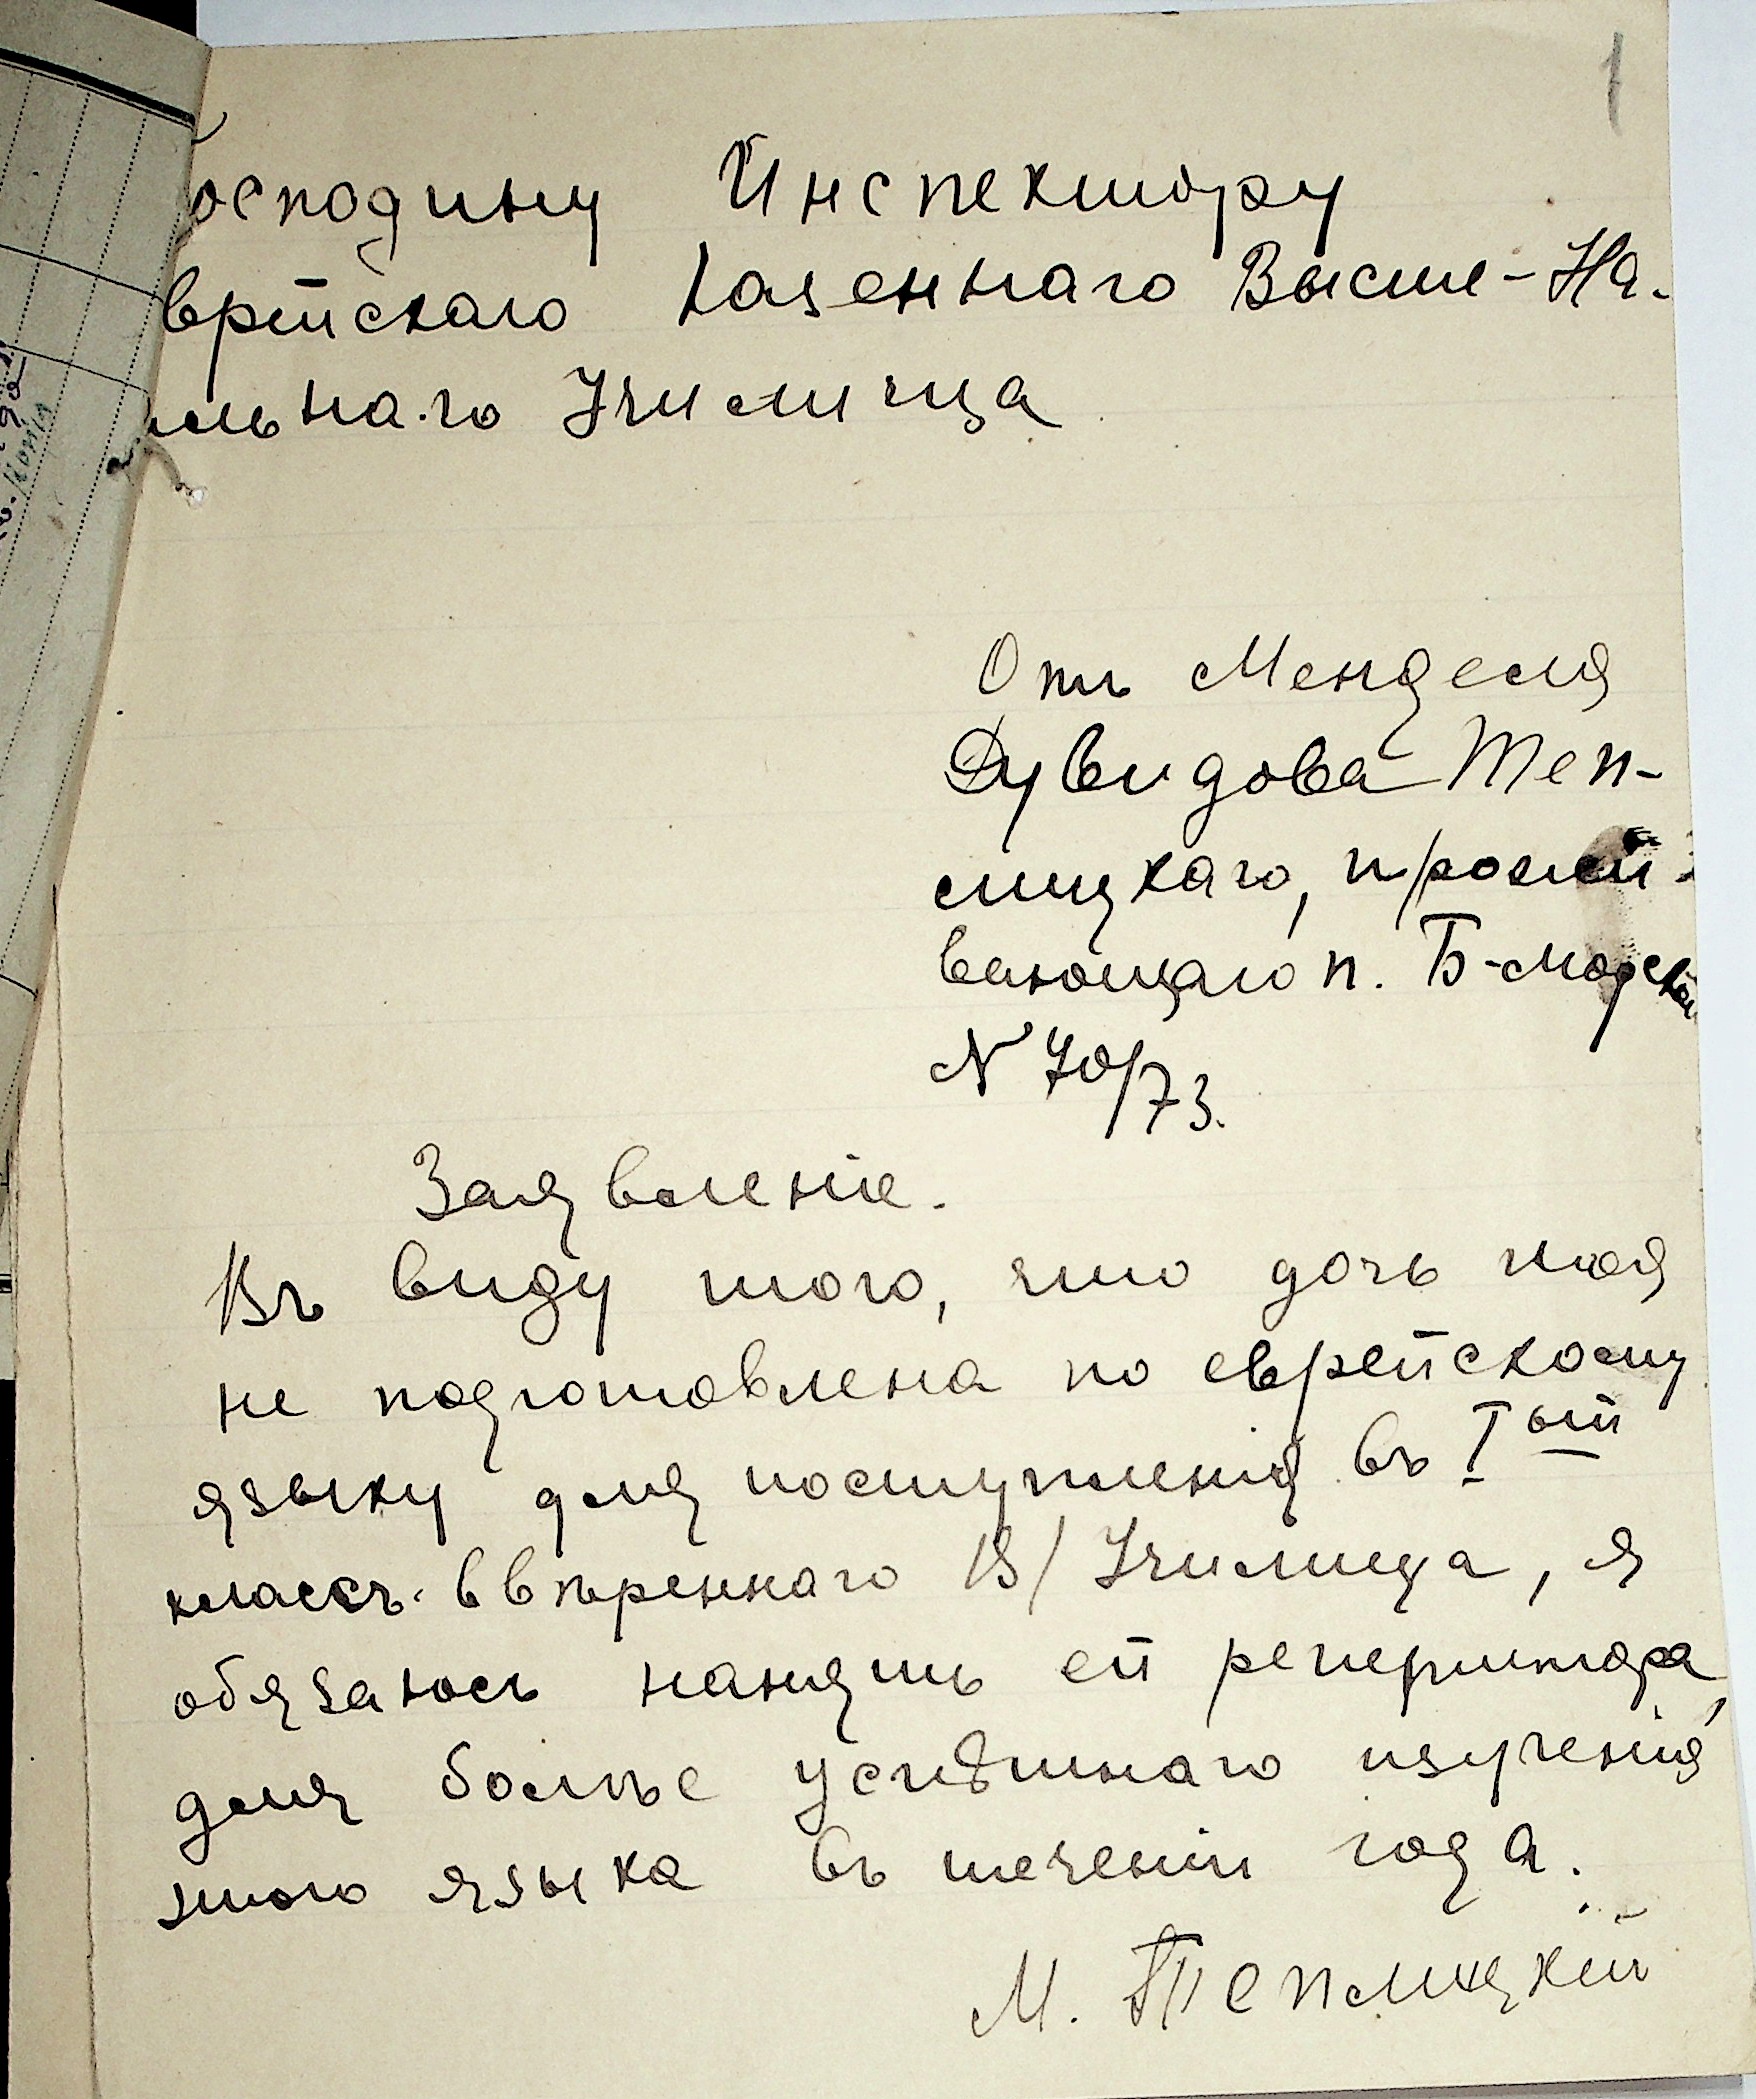 1
осподину Инспектору
врейскаго Казеннаго Высше-На-
льнаго Училища
Отъ Менделя
Дувидова Теп-
лицкаго, прожи-
вающаго п. Б-Морской
N 70/73.
Заявленіе.
Въ виду того, что дочь моя
не подготовлена по еврейскому
языку для поступленія въ Iый
классъ ввѣреннаго В/ Училища, я
обязаюсь нанять ей репетитора,
для болѣе успѣшнаго изученія
этого языка въ теченіи года.
М. Теплицкій